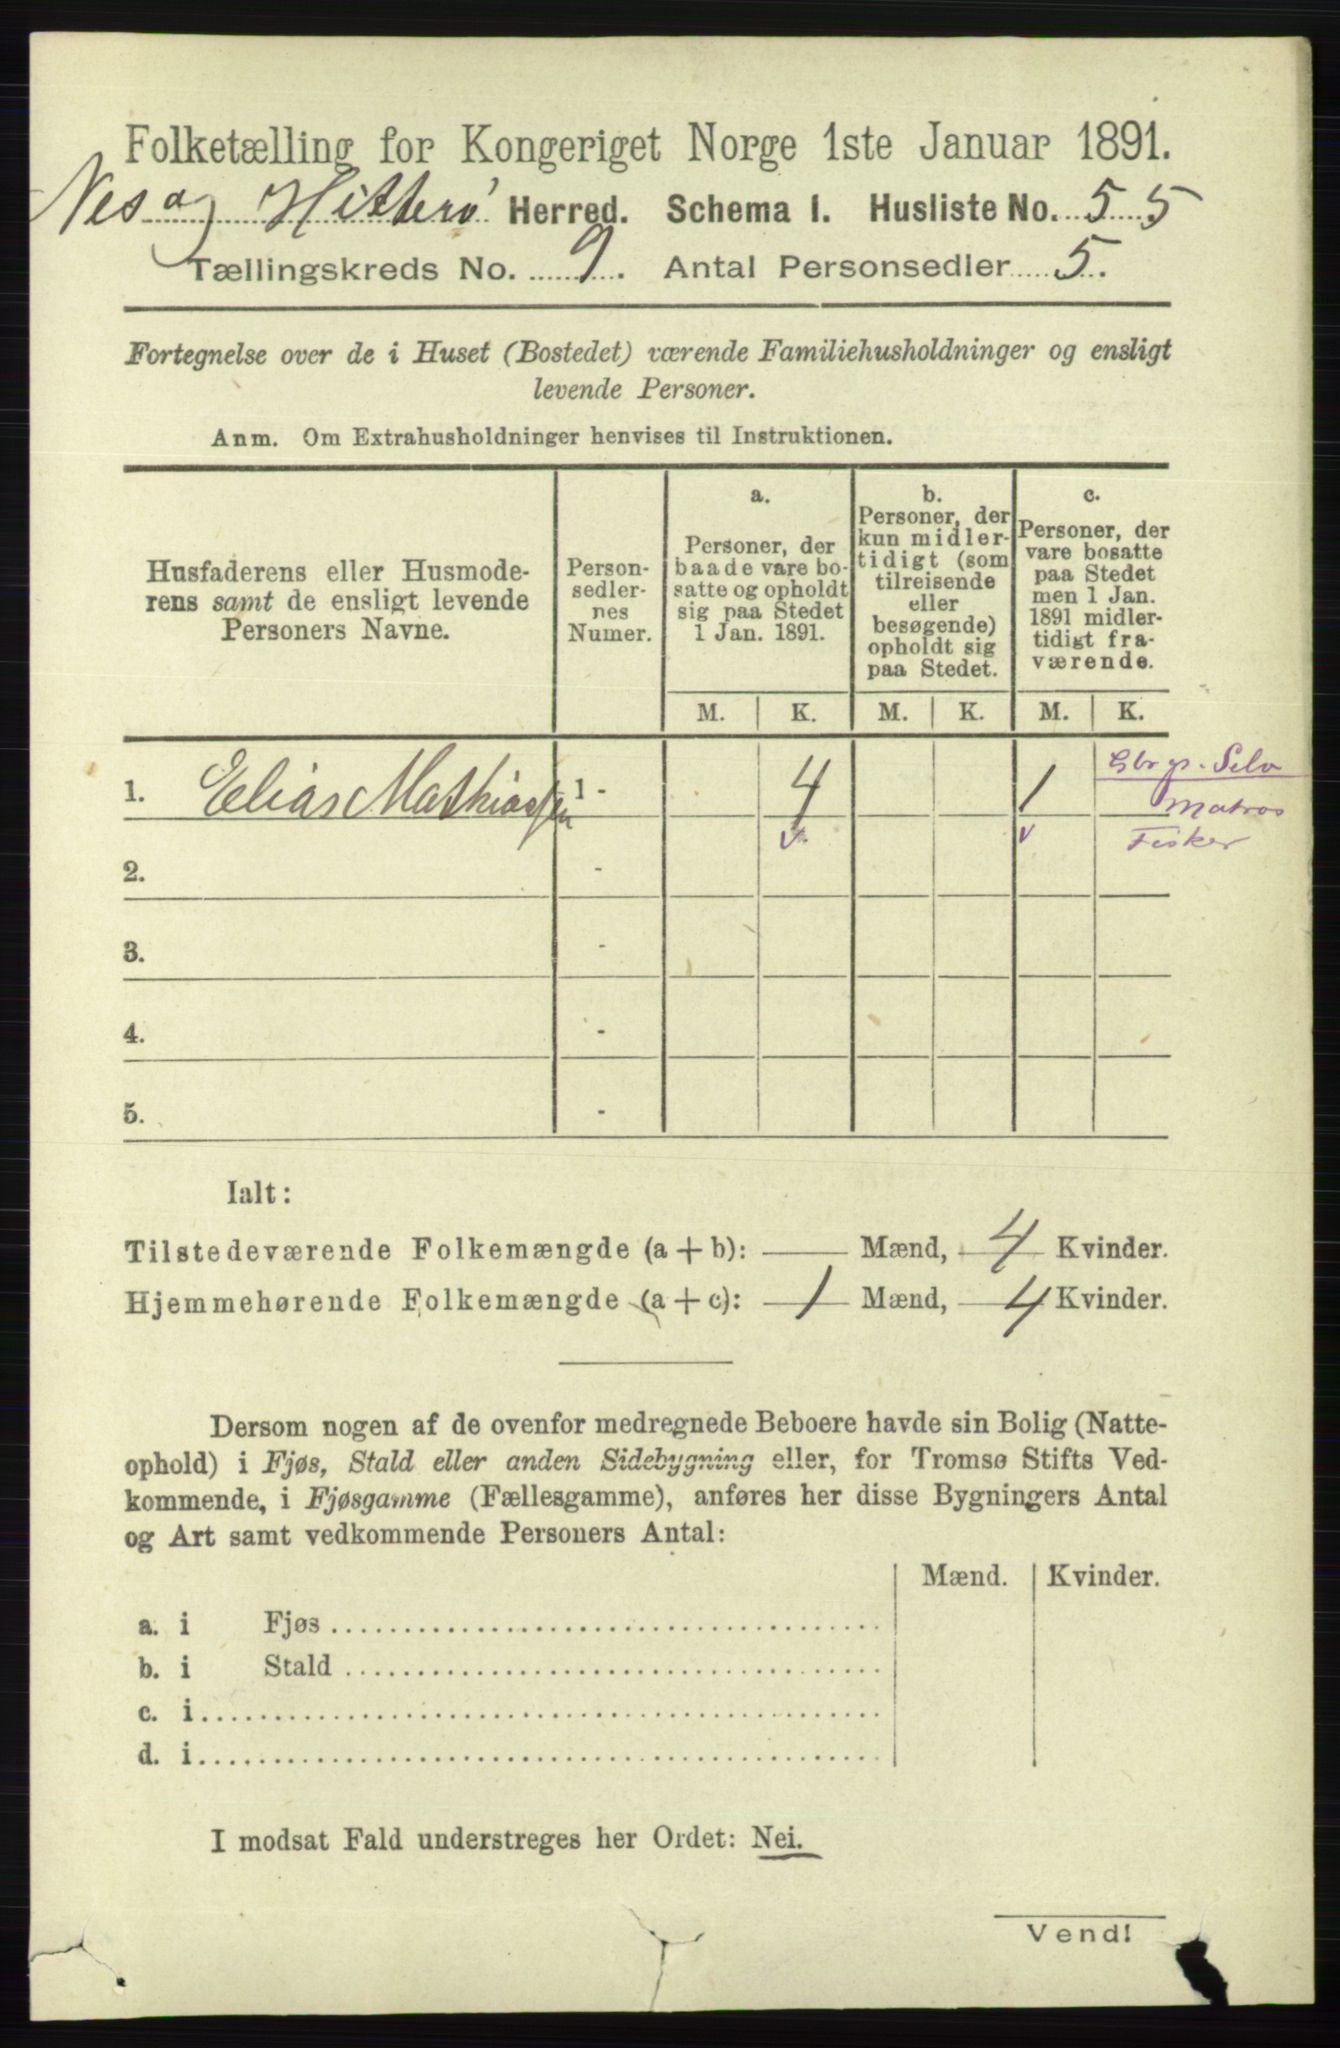 Folketælling for Kongeriget Norge 1ste Januar 1891.
Nes og Hitterø Herred. Schema I. Husliste No. 55
Tællingskreds No. 9. Antal Personsedler 5.
Fortegnelse over de i Huset (Bostedet) værende Familiehusholdninger og ensligt
levende Personer.
Anm. Om Extrahusholdninger henvises til Instruktionen.
Husfaderens eller Husmode-
rens samt de ensligt levende
Personers Navne.
Person-
sedler-
nes
Numer.
a.
Personer, der
baade vare bo-
satte og opholdt
sig paa Stedet
1 Jan. 1891.
b.
Personer, der
kun midler-
tidigt (som
tilreisende
eller
besøgende)
opholdt sig
paa Stedet.
c.
Personer, der
vare bosatte
paa Stedet
men 1 Jan.
1891 midler-
tidigt fra-
værende.
M. K. M. K. M. K.
1. Elias Mathiassen 1 - 4 1
Gbr gs. Selv
Matros
Fisker
2. -
3. -
4. -
5. -
Ialt:
Tilstedeværende Folkemængde (a + b): — Mænd, 4 Kvinder.
Hjemmehørende Folkemængde (a + c): 1 Mænd, 4 Kvinder.
Dersom nogen af de ovenfor medregnede Beboere havde sin Bolig (Natte-
ophold) i Fjøs, Stald eller anden Sidebygning eller, for Tromsø Stifts Ved-
kommende, i Fjøsgamme (Fællesgamme), anføres her disse Bygningers Antal
og Art samt vedkommende Personers Antal:
Mænd. Kvinder.
a. i Fjøs
b. i Stald
c. i
d. i
I modsat Fald understreges her Ordet: Nei.
Vend!